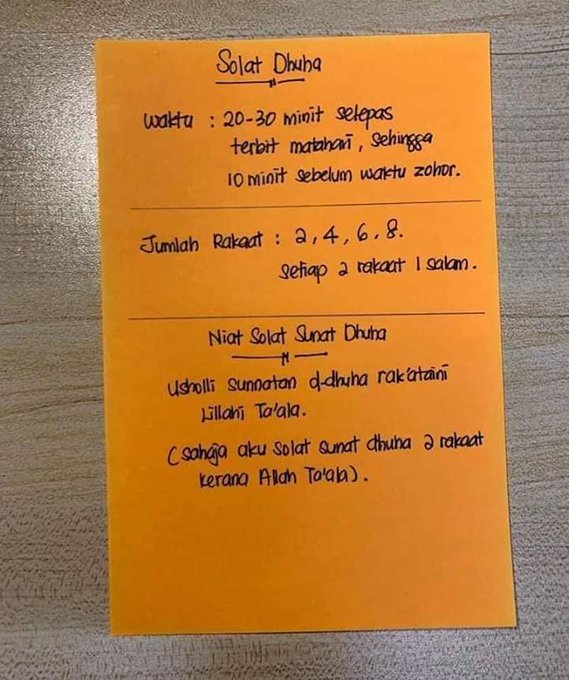 Solat Dhuha
Waktu : 20-30 minit selepas
terbit matahari, sehingga
10 minit sebelum waktu zohor.
Jumlah Rakaat : 2, 4, 6, 8.
setiap 2 rakaat 1 salam.
Niat Solat Sunat Dhuha
Usholli sunnatan d-dhuha rak'ataini
Lillahi Ta'ala.
(sahaja aku solat sunat dhuha 2 rakaat
kerana Allah Ta'ala).